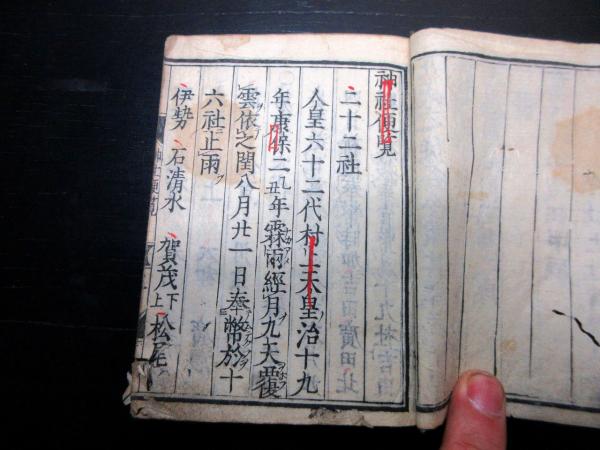 神社便覧
二十二社
人皇六十二代村上天皇治十九
年康保二乙丑年霖雨經月九天覆
雲依之閏八月廿一日奉幣於十
六社止雨
伊勢 石清水 賀茂下上 松尾